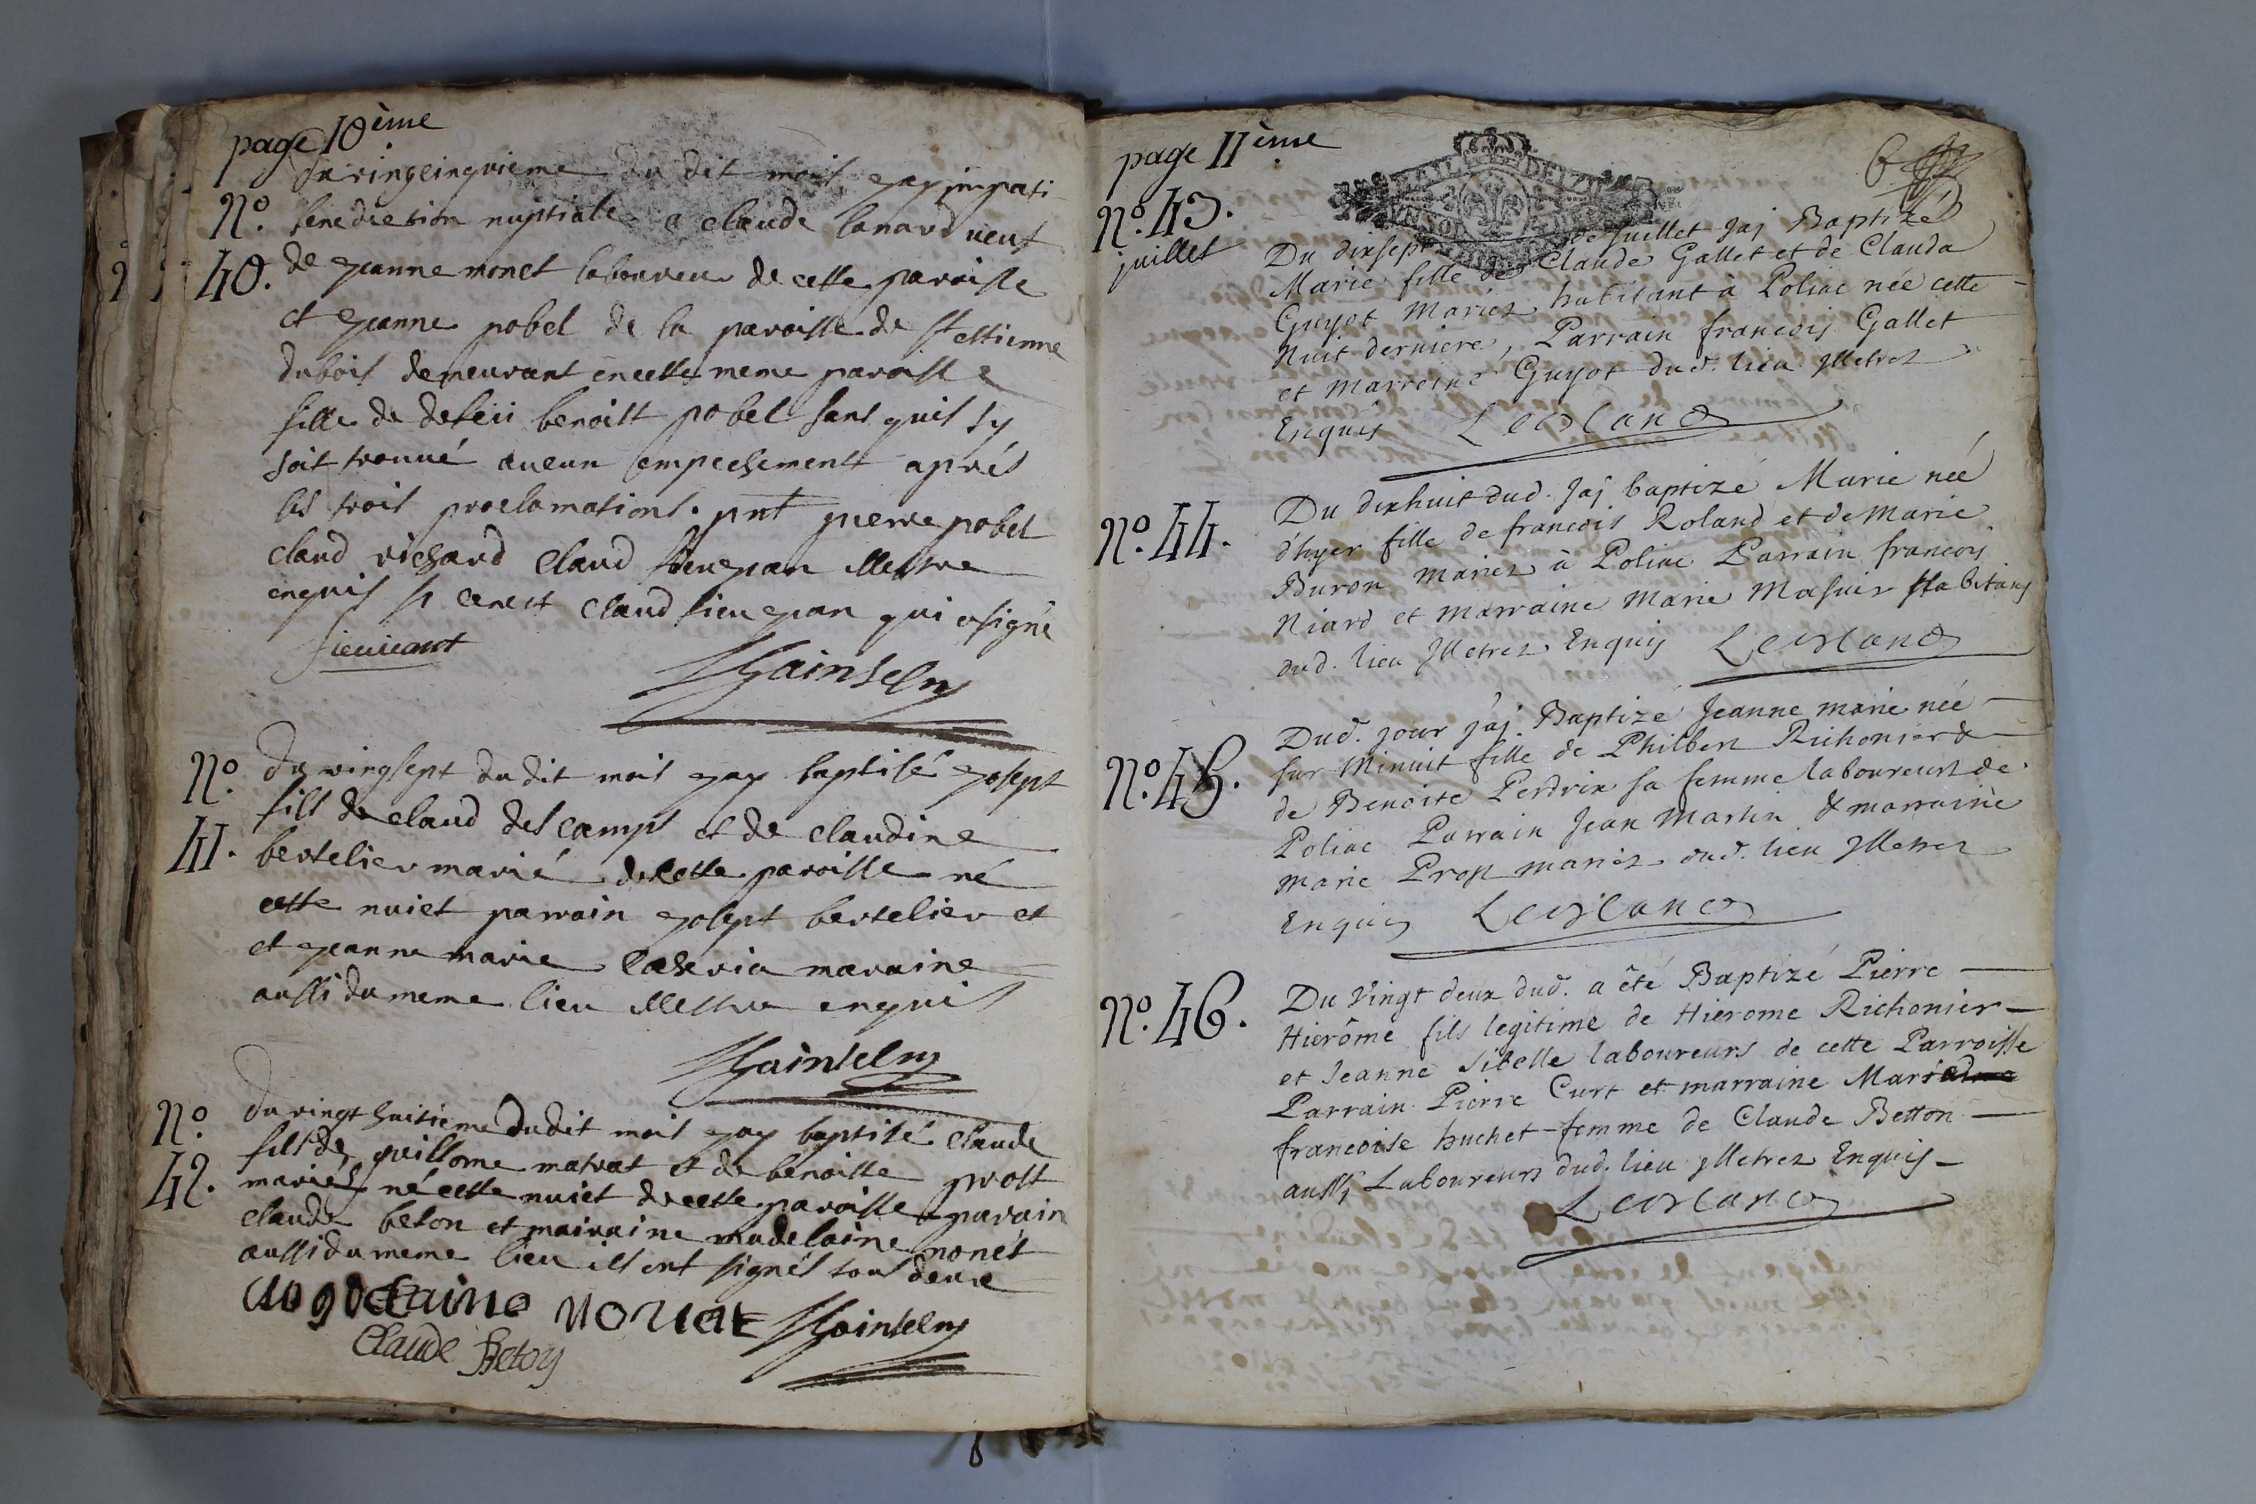 page 10ème
Du vingcinqvieme du dit mois j'ay imparti
No. benediction nuptiale a claude lanard veuf
40. de jeanne monet laboureur de cette paroisse
et jeanne pobel de la paroisse de st estienne
dubois demeurant en cette meme paroisse
fille de defeu benoistt pobel sans quil sy
soit trouvé aucun empechement aprés
les trois proclamations. pnt pierre pobel
claud richard claud illettre
enquis si cenest claud lieu jean qui a signé
Hainseln
No. Du vingsept du dit mois jay baptisé josept
fils de claud descamps et de claudine
41. bertelier marié de cette paroisse né
cette nuict parrain josept bertelier et
et jeanne marie maraine
aussi du meme lieu illettre enquis
Hainseln
No. Du vingt huitieme du dit mois jay baptisé claude
fils de guillome matrat et de benoitte prost
42. mariés né cette nuict de cette paroisse parain
claude beton et mairaine madelaine nonet
aussi du meme lieu ils ont signés tous deux
Hainseln
Claude Betoy
page 11ème
6
No. 43.
juillet
Du dixsept de juillet jaj Baptizé
Marie fille de Claude Gallet et de Clauda
Guyot Mariez habitant à Poliac née cette
Nuit derniere, Parrain francois Gallet
et marreine Guyot dud. lieu Illetrez
Enquis Leblanc
No. 44. Du dixhuit dud. jaj baptizé Marie neé
d'hyer fille de francois Roland et de Marie
Buron Mariez à Poliac Parrain francoy
Niard et marraine Marie Masuir habitans
dud. lieu Illetrez Enquis Leblanc
No. 45. Dud. jour j'aj Baptizé Jeanne marie neé
sur Minuit fille de Philbert Richonier &
de Benoite Perdrix sa femme laboureurs de
Poliac Parrain Jean Martin & marraine
Marie Prost mariéz dud. lieu Illetrez
Enquis Leblanc
No. 46. Du Vingt deux dud. a êté Baptizé Pierre
Hierôme fils legitime de Hierome Richonier
et Jeanne Sibelle laboureurs de cette Parroisse
Parrain Pierre Curt et marraine Mari
francoise huchet femme de Claude Betton
aussj Laboureurs dud. lieu Illetrez Enquis
Leblanc